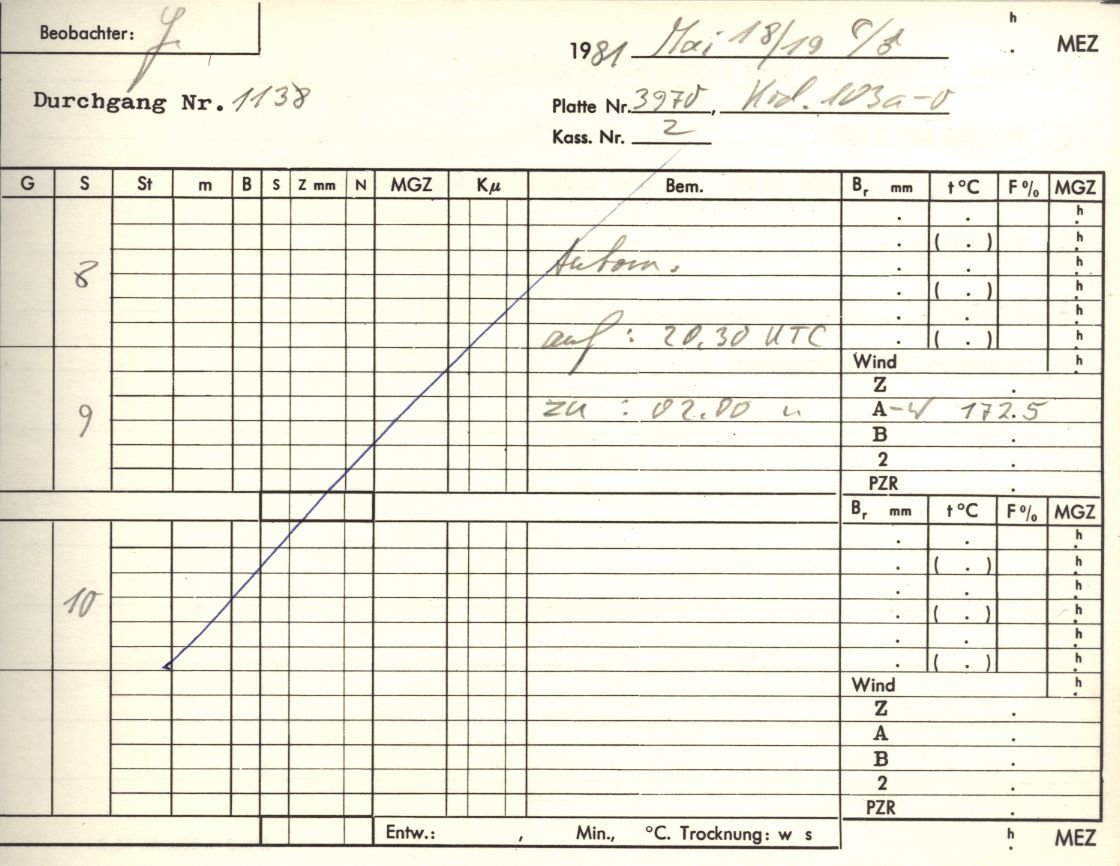 Beobachter:
h
1981 Mai 18/19 . MEZ
Durchgang Nr. 1138
Platte Nr. 3970, Kod. 103a-0
Kass. Nr. 2
G S St m B S Z mm N MGZ Kμ Bem. Br mm t °C F % MGZ
. . h
. ( . ) h
8 Autom. . . h
. ( . ) h
. . h
auf : 20.30 UTC . ( . ) h
Wind h
Z .
9 zu : 02.00 " A-W 172.5
B .
2 .
PZR .
Br mm t °C F % MGZ
. . h
. ( . ) h
. . h
10 . ( . ) h
. . h
. ( . ) h
Wind h
Z .
A .
B .
2 .
PZR .
Entw.: , Min., °C. Trocknung: w s h . MEZ